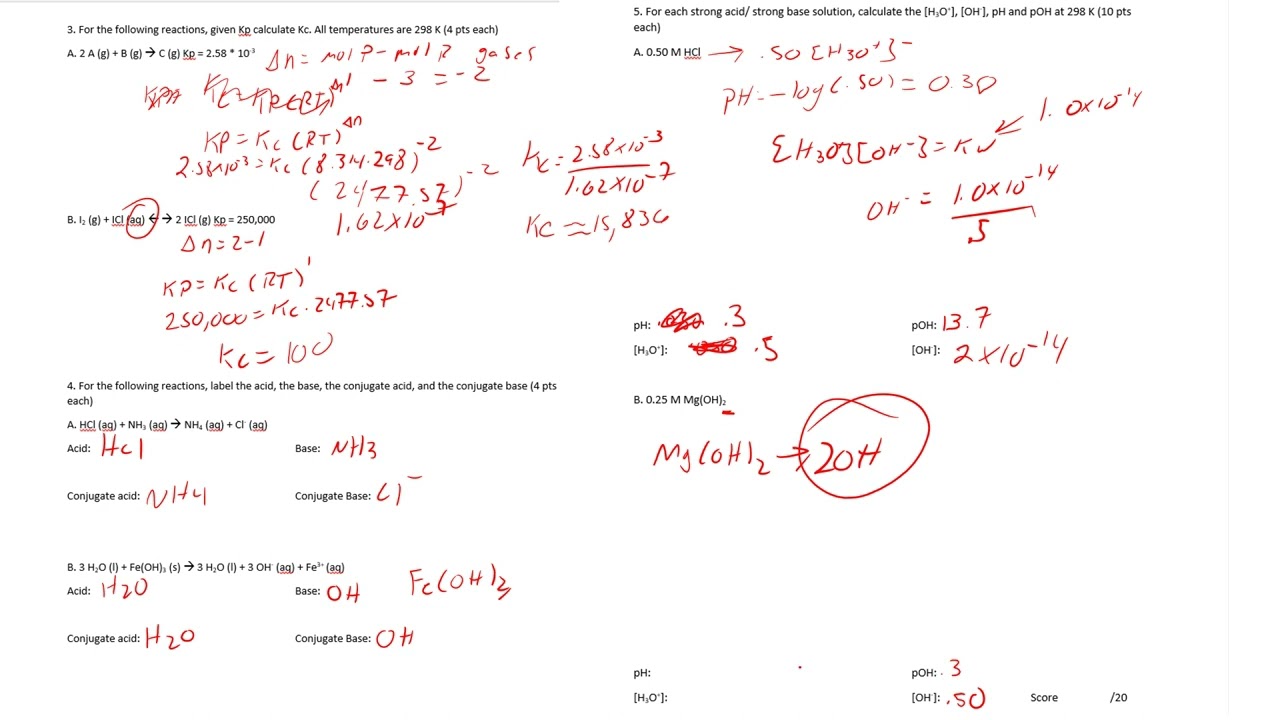 3. For the following reactions, given Kp calculate Kc. All temperatures are 298 K (4 pts each)
A. 2 A (g) + B (g) → C (g) Kp = 2.58 * 10⁻³
Δn = mol P - mol R gases
1 - 3 = -2
KP = Kc (RT)^Δn
2.58x10⁻³ = Kc (8.314.298)⁻²
(2477.57)⁻²
1.62x10⁻⁷
Kc = 2.58x10⁻³
1.62x10⁻⁷
Kc ≈ 15,836
B. I₂ (g) + ICl (aq) ←→ 2 ICl (g) Kp = 250,000
Δn = 2-1
KP = Kc (RT)¹
250,000 = Kc . 2477.57
Kc = 100
4. For the following reactions, label the acid, the base, the conjugate acid, and the conjugate base (4 pts
each)
A. HCl (aq) + NH₃ (aq) → NH₄ (aq) + Cl⁻ (aq)
Acid: HCl Base: NH3
Conjugate acid: NH4 Conjugate Base: Cl⁻
B. 3 H₂O (l) + Fe(OH)₃ (s) → 3 H₂O (l) + 3 OH⁻ (aq) + Fe³⁺ (aq)
Acid: H2O Base: OH Fe(OH)3
Conjugate acid: H2O Conjugate Base: OH
5. For each strong acid/ strong base solution, calculate the [H₃O⁺], [OH⁻], pH and pOH at 298 K (10 pts
each)
A. 0.50 M HCl → .50 [H3O⁺]⁻
PH = -log(.50) = 0.30
1.0x10⁻¹⁴
[H3O][OH-] = Kw
OH⁻ = 1.0x10⁻¹⁴
.5
pH: .3 pOH: 13.7
[H₃O⁺]: .5 [OH⁻]: 2x10⁻¹⁴
B. 0.25 M Mg(OH)₂
Mg(OH)₂ → 2OH
pH: pOH: .3
[H₃O⁺]: [OH⁻]: .50 Score /20